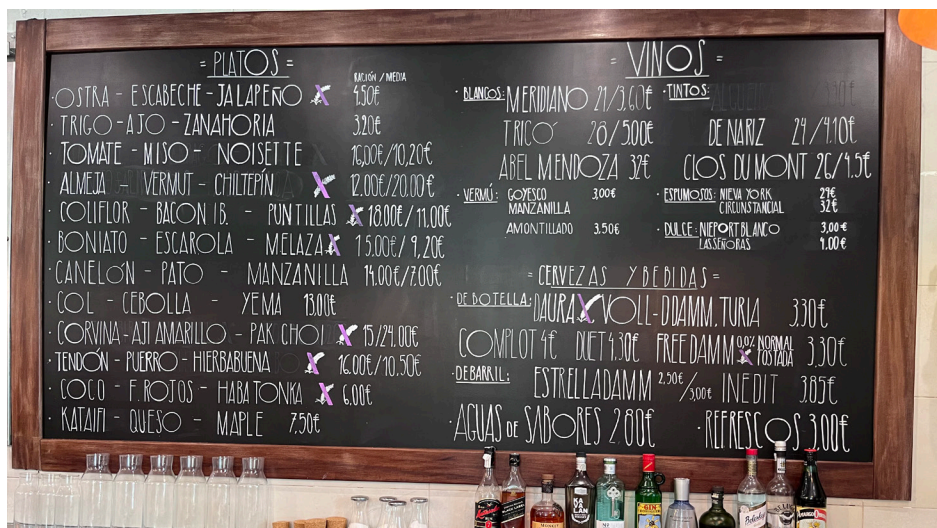 = PLATOS =
RACIÓN / MEDIA
· OSTRA - ESCABECHE - JALAPEÑO 4.50€
· TRIGO - AJO - ZANAHORIA 3.20€
· TOMATE - MISO - NOISETTE 16,00€/10,20€
· ALMEJA - VERMUT - CHILTEPÍN 12.00€/20.00€
· COLIFLOR - BACON IB. - PUNTILLAS 18.00€/11.00€
· BONIATO - ESCAROLA - MELAZA 15.00€/9,20€
· CANELÓN - PATO - MANZANILLA 14.00€/7.00€
· COL - CEBOLLA - YEMA 13.00€
· CORVINA - AJI AMARILLO - PAK CHOI 15/24.00€
· TENDÓN - PUERRO - HIERBABUENA 16.00€/10.50€
· COCO - F. ROJOS - HABA TONKA 6.00€
· KATAIFI - QUESO - MAPLE 7,50€
= VINOS =
· BLANCOS: MERIDIANO 21/3,60€
TRICÓ 28/5.00€
ABEL MENDOZA 32€
· TINTOS:
DE NARIZ 24/4.10€
CLOS DU MONT 26/4.5€
· VERMÚ: GOYESCO 3,00€
MANZANILLA
AMONTILLADO 3.50€
· ESPUMOSOS: NIEVA YORK 29€
CIRCUNSTANCIAL 32€
· DULCE: NIEPORT BLANCO 3,00€
LAS SEÑORAS 4.00€
= CERVEZAS Y BEBIDAS =
· DE BOTELLA: DAURA VOLL-DDAMM. TURIA 3.30€
COMPLOT 4€ DUET 4.30€ FREE DAMM 0,0% NORMAL TOSTADA 3,30€
· DE BARRIL: ESTRELLA DAMM 2,50€/3,00€ INEDIT 3.85€
· AGUAS DE SABORES 2.80€ · REFRESCOS 3,00€
KAVALAN
GIN